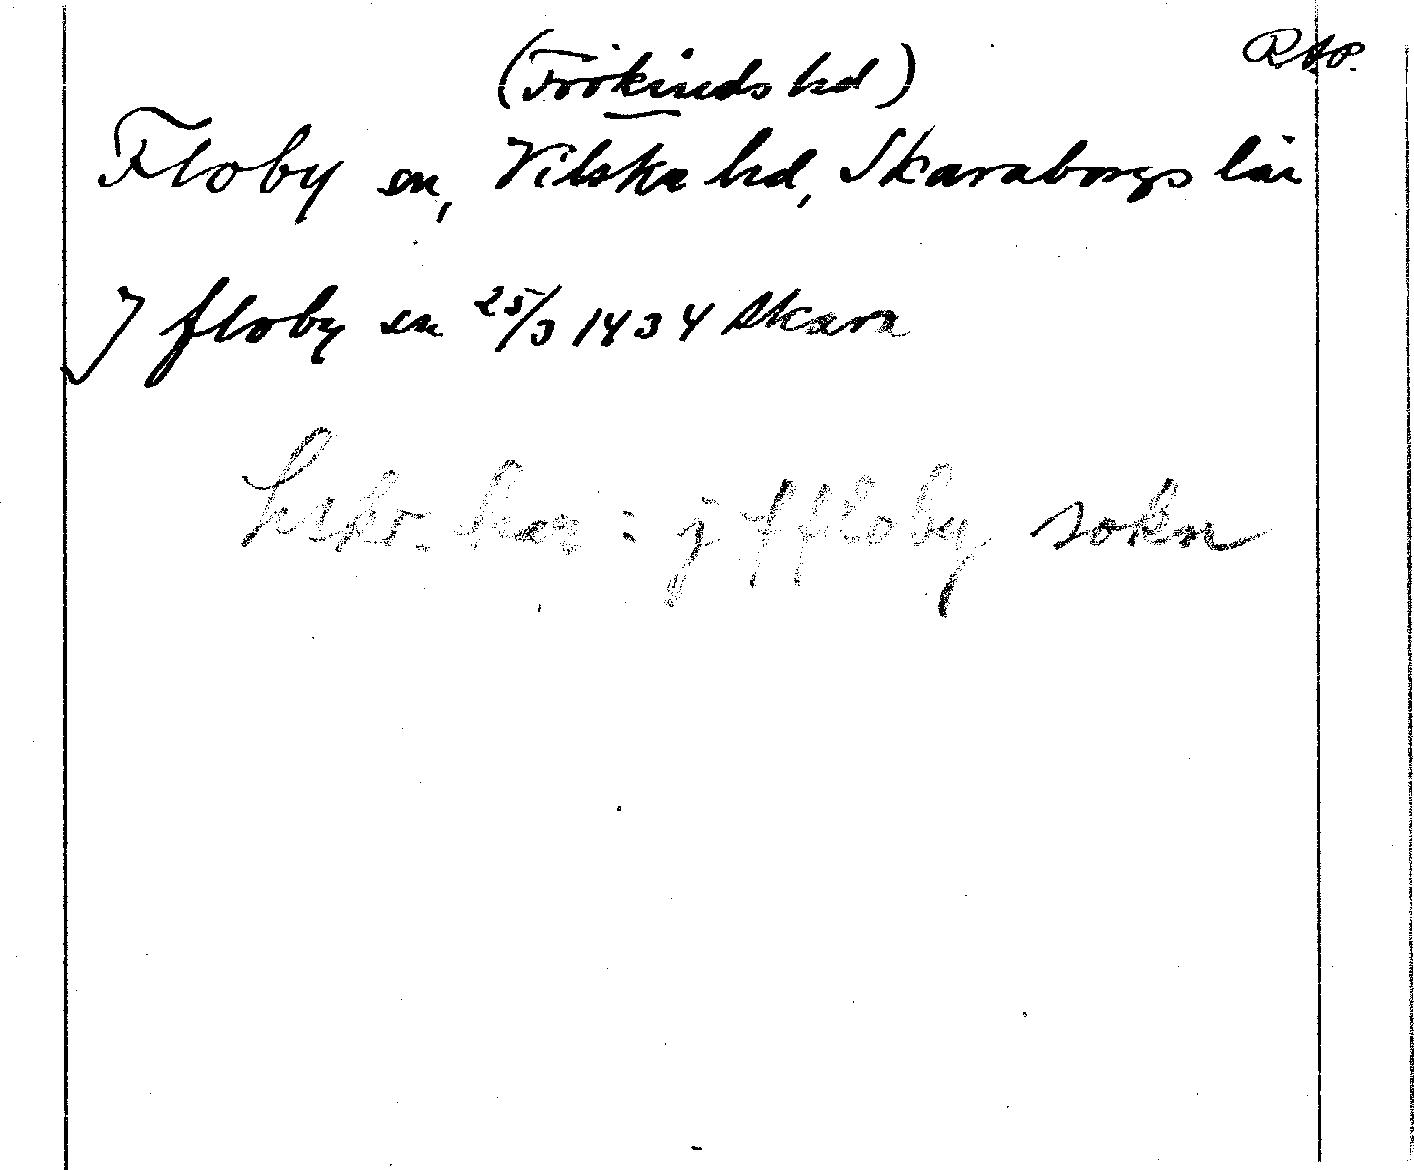 RAP.
(Frökinds hd)
Floby sn, Vilske hd, Skaraborgs län
J floby sn 25/3 1434 Skara
hskr. har: j ffloby sokn